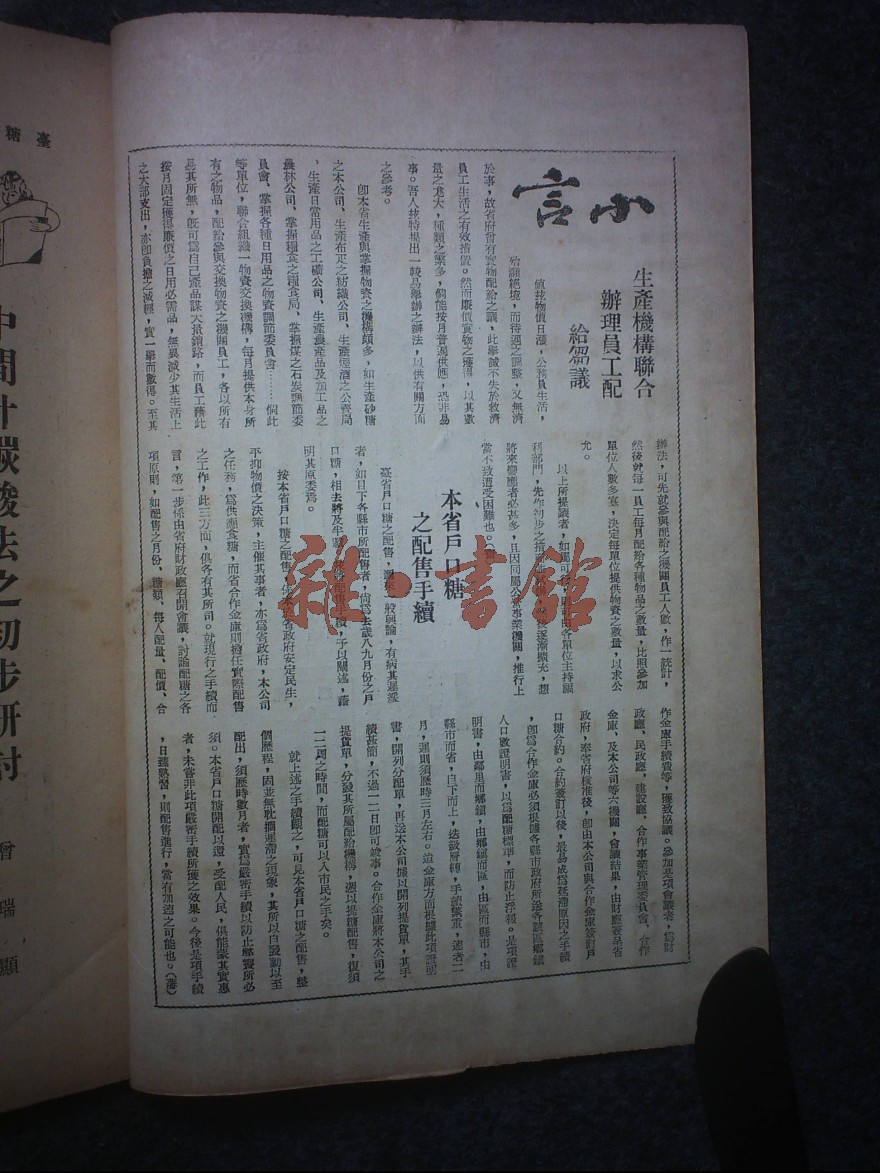 小言
生產機構聯合
辦理員工配
給芻議
值茲物價日漲，公務員生活，
瀕絕境，而待遇之調整，又無濟
於事，故省府曾有實物配給之議，此舉誠不失於救濟
員工生活之有效措置。然而廉價實物之獲得，以其數
量之龐大，種類之繁多，倘能按月普遍供應，恐非易
事。吾人茲特提出一較易舉辦之辦法，以供有關方面
之參考。
卽本省生產與掌握物資之機構頗多，如生產砂糖
之本公司，生產布疋之紡織公司，生產煙酒之公賣局
，生產日常用品之工礦公司，生產農產品及加工品之
農林公司，掌握糧食之糧食局，掌握煤之石炭調節委
員會，掌握各種日用品之物資調節委員會……倘此
等單位，聯合組織一物資交換機構，每月提供本身所
有之物品，配給參與交換物資之機關員工，各以所有
易其所無，旣可為自己產品謀大量銷路，而員工藉此
按月固定獲得廉價之日用必需品，無異減少其生活上
之大部支出，亦卽負擔之減輕，實一舉而數得。至其
辦法，可先就參與配給之機關員工人數，作一統計，
然後就每一員工每月配給各種物品之數量，比照參加
單位人數多寡，決定每單位提供物資之數量，以求公
允。
以上所提議者，如屬可行，
將來響應者必甚多，且因同屬公營事業機關，推行上
當不致遭受困難也。
本省戶口糖
之配售手續
臺省戶口糖之配售，
者，如目下各縣市所配售者，尙為去歲八九月份之戶
口糖，相去將及半載，
明其原委焉。
按本省戶口糖之配售，
平抑物價之決策，主催其事者，亦為省政府，本公司
之任務，為供應食糖，而省合作金庫則擔任實際配售
之工作，此三方面，俱各有其所司。就現行之手續而
言，第一步係由省府財政廳召開會議，討論配糖之各
項原則，如配售之月份，糖類，每人配量，配價，合
作金庫手續費等，獲致協議。參加是項會議者，為財
政廳、民政廳，建設廳，合作事業管理委員會，合作
金庫，及本公司等六機關，會議結果，由財廳簽呈省
政府，奉省府核准後，卽由本公司與合作金庫簽訂戶
口糖合約。合約簽訂以後，最易成為遲滯原因之手續
，卽為合作金庫必須根據各縣市政府所送各該區鄉鎮
人口數證明書，以為配糖標準，而防止浮報。是項證
明書，由鄰里而鄉鎮，由鄉鎮而區，由區而縣市，由
縣市而省，自下而上，迭級層轉，手續繁重，速者二
月，遲則須歷時三月左右。迨金庫方面根據此項證明
書，開列分配單，再送本公司據以開列提貨單，其手
續甚簡，不過一二日卽可竣事。合作金庫將本公司之
提貨單，分發其所屬配給機構，憑以提糖配售，復須
一二週之時間，而配糖可以入市民之手矣。
就上述之手續觀之，可見本省戶口糖之配售，整
個歷程，因並無耽擱遲滯之現象，其所以自發動以至
配出，須歷時數月者，實為嚴密手續以防止弊竇所必
須。本省戶口糖開配以還，受配人民，俱能蒙其實惠
者，未嘗非此項嚴密手續所獲之效果。今後是項手續
，日臻熟習，則配售進行，當有加速之可能也。
雜·書館
臺糖
曾瑞顯